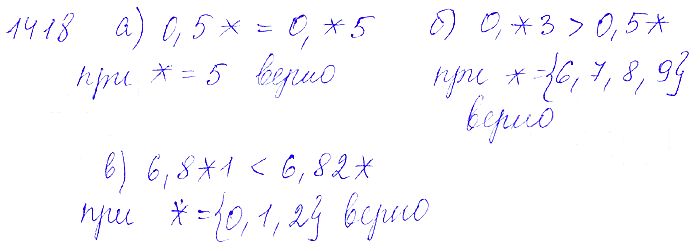 1418 а) 0,5* = 0,*5 б) 0,*3 > 0,5*
при * = 5 верно при * = {6, 7, 8, 9}
верно
в) 6,8*1 < 6,82*
при * = {0, 1, 2} верно